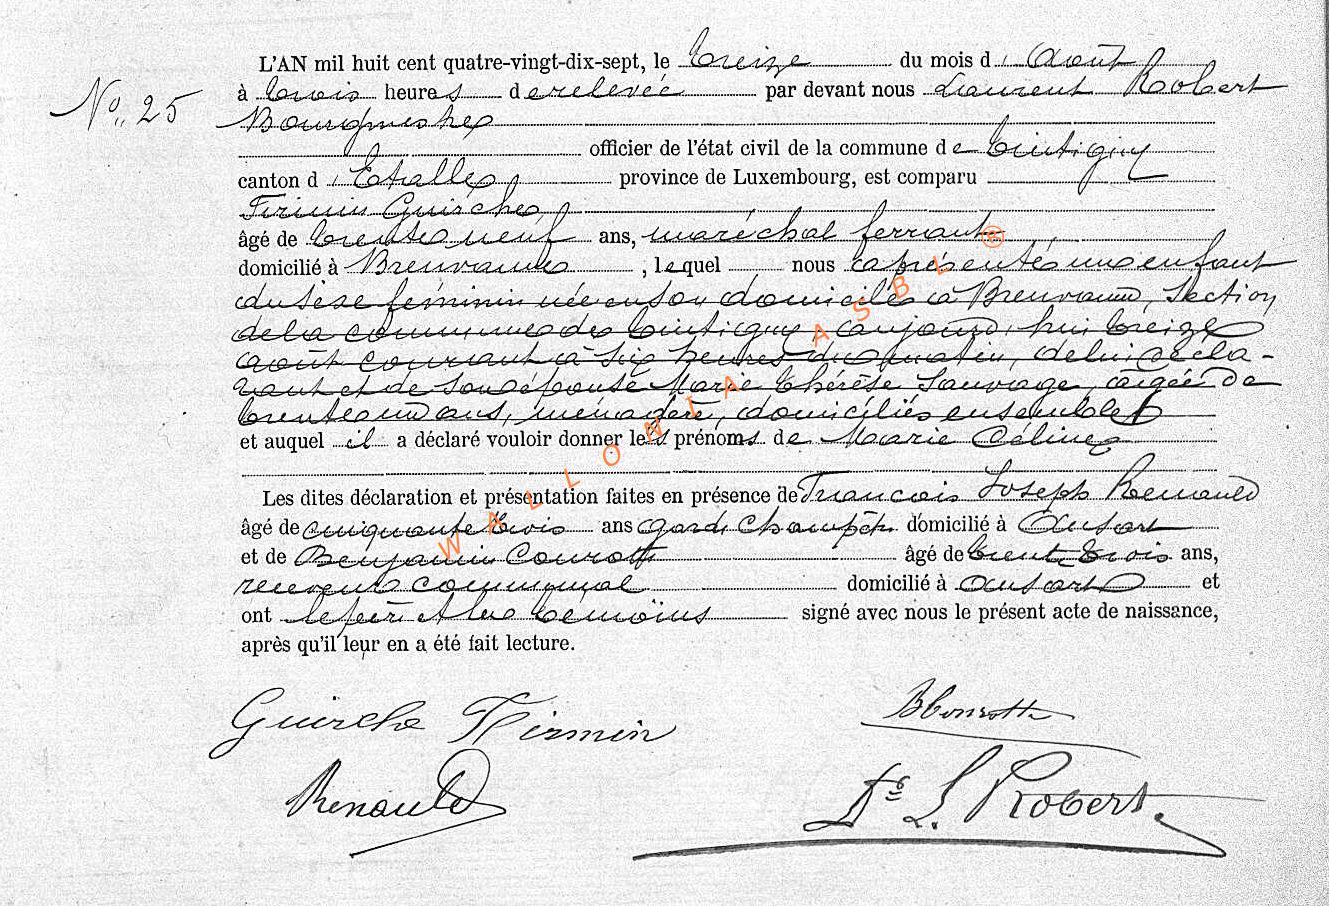 L'AN mil huit cent quatre-vingt-dix-sept, le treize du mois d'Août
No 25
à trois heures de relevée par devant nous Laurent Robert
Bourgmestre
officier de l'état civil de la commune de Tintigny
canton d'Etalle province de Luxembourg, est comparu
Firmin Guirche
âgé de trente neuf ans, maréchal ferrant
domicilié à Breuvanne, lequel nous a présenté une enfant
du sexe féminin née en son domicile à Breuvanne, section
de la commune de Tintigny, aujourd'hui treize
août courant à six heures du matin, de lui décla-
rant et de son épouse Marie Thérèse Sauvage, âgée de
trente un ans, ménagère, domiciliés ensemble
et auquel il a déclaré vouloir donner les prénoms de Marie Céline
Les dites déclaration et présentation faites en présence de François Joseph Renauld
âgé de cinquante trois ans garde champêtre domicilié à Ansart
et de Benjamin Courotte âgé de trente trois ans,
receveur communal domicilié à Ansart et
ont le père et les témoins signé avec nous le présent acte de naissance,
après qu'il leur en a été fait lecture.
Guirche Firmin
BCourotte
Renauld
Dr L. Robert
WALLONIA ASBL ®